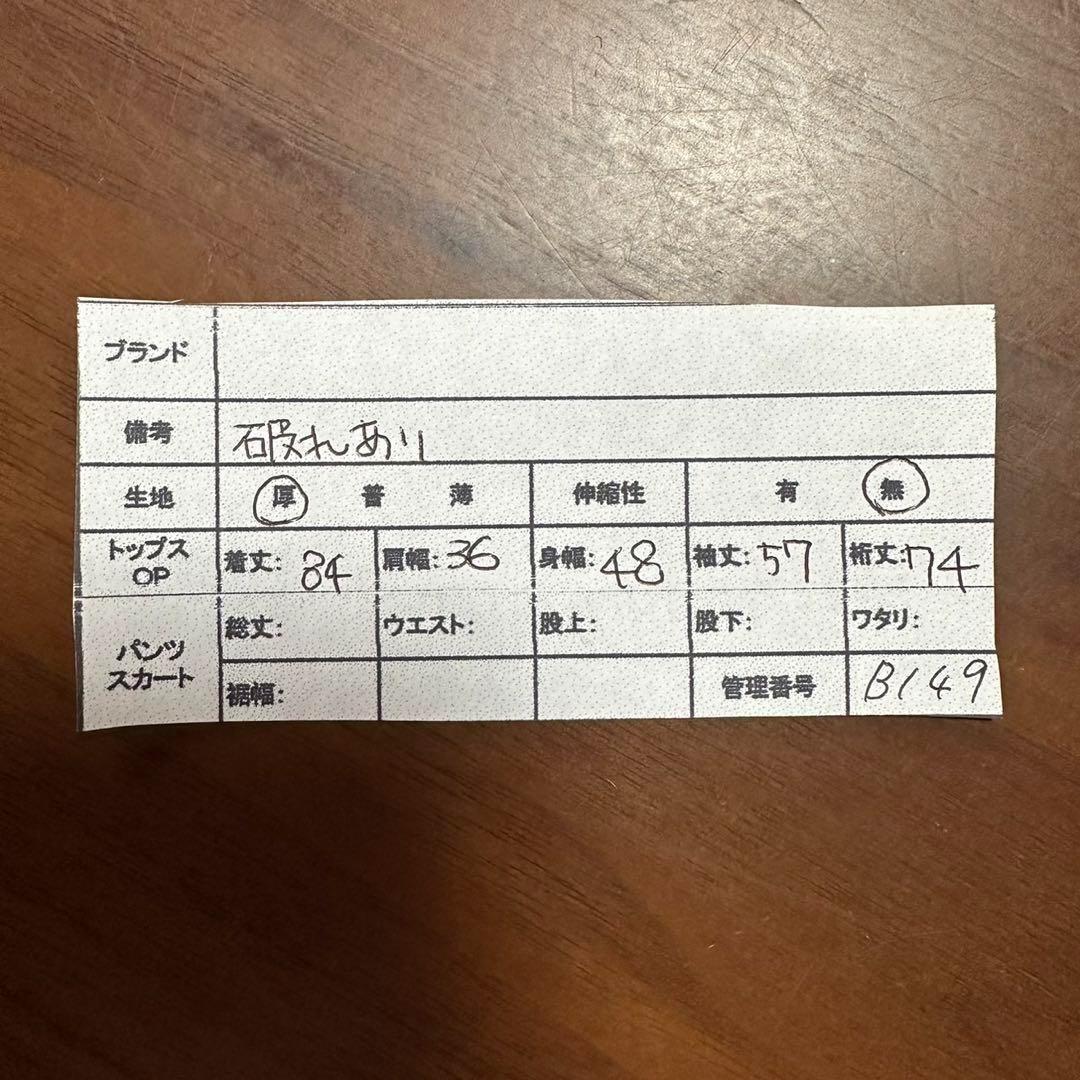 ブランド
備考 破れあり
生地 厚 普 薄 伸縮性 有 無
トップス OP 着丈: 84 肩幅: 36 身幅: 48 袖丈: 57 裄丈: 74
パンツ スカート 総丈: ウエスト: 股上: 股下: ワタリ:
裾幅: 管理番号 B149